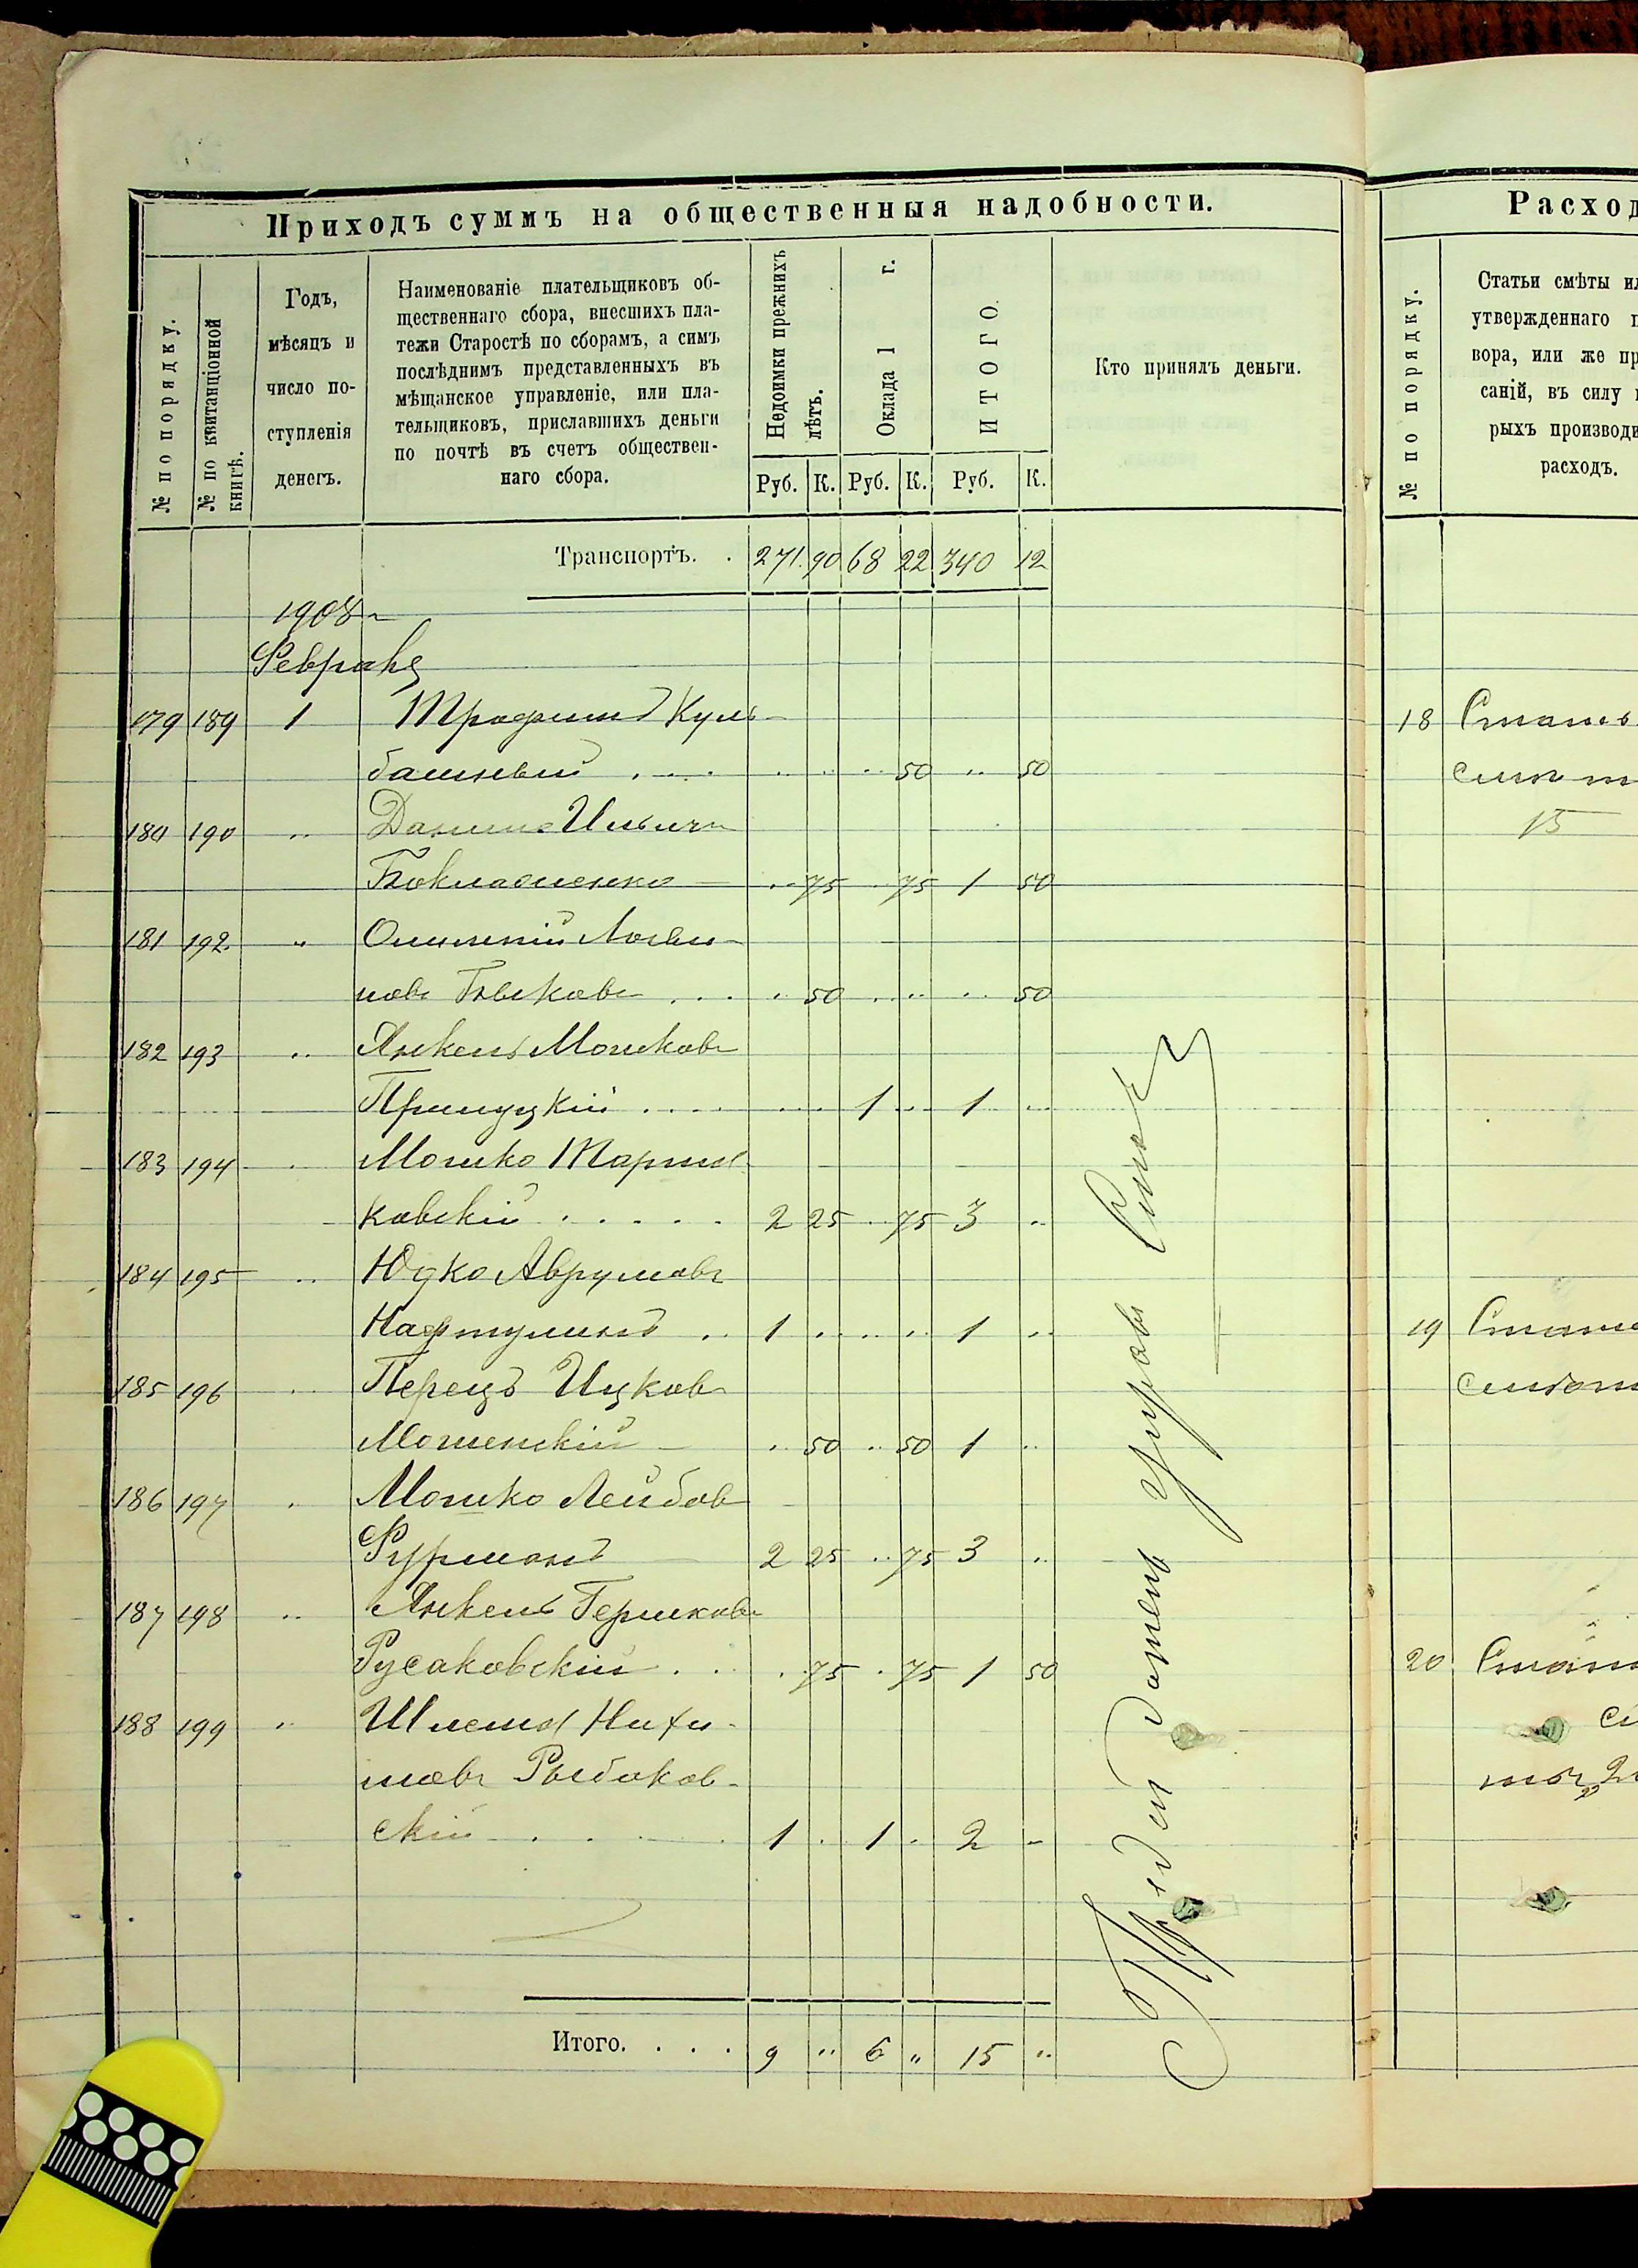 Приходъ суммъ на общественныя надобности.
№ по порядку.
№ по квитанціонной
книгѣ.
Годъ,
мѣсяцъ и
число по-
ступленія
денегъ.
Наименованіе плательщиковъ об-
щественнаго сбора, внесшихъ пла-
тежи Старостѣ по сборамъ, а симъ
послѣднимъ представленныхъ въ
мѣщанское управленіе, или пла-
тельщиковъ, приславшихъ деньги
по почтѣ въ счетъ обществен-
наго сбора.
Недоимки прежнихъ
лѣтъ.
Оклада 1 г.
ИТОГО.
Кто принялъ деньги.
Руб. К. Руб. К. Руб. К.
Транспортъ. . 271 90 68 22 340 12
1908 г
Февраля
179 189 1 Трофимъ Куль-
.. .. .. 50 .. 50
180 190 .. Данило Ильичъ
.. 75 .. 75 1 50
181 192 ..
новъ .. 50 .. .. .. 50
182 193 .. Янкель Мошковъ
Прилуцкій .... .. .. 1 .. 1 ..
183 194 .. Мошко
ковскій ..... 2 25 .. 75 3 ..
184 195 .. Юдко Аврумовъ
Нафтулинъ .. 1 .. .. .. 1 ..
185 196 .. Перецъ Ицковъ
.. 50 .. 50 1 ..
186 197 .. Мошко Лейбов
Фурманъ 2 25 .. 75 3 ..
187 198 .. Янкель Гершковъ
Русаковскій .. .. 75 .. 75 1 50
188 199 .. Шлема Нухи-
мовъ Рыбаков-
скій .... 1 .. 1 .. 2 ..
Итого. . . . 9 .. 6 .. 15 ..
Расход
№ по порядку.
Статьи смѣты ил
утвержденнаго п
вора, или же пр
саній, въ силу
рыхъ производи
расходъ.
18
15
19
20